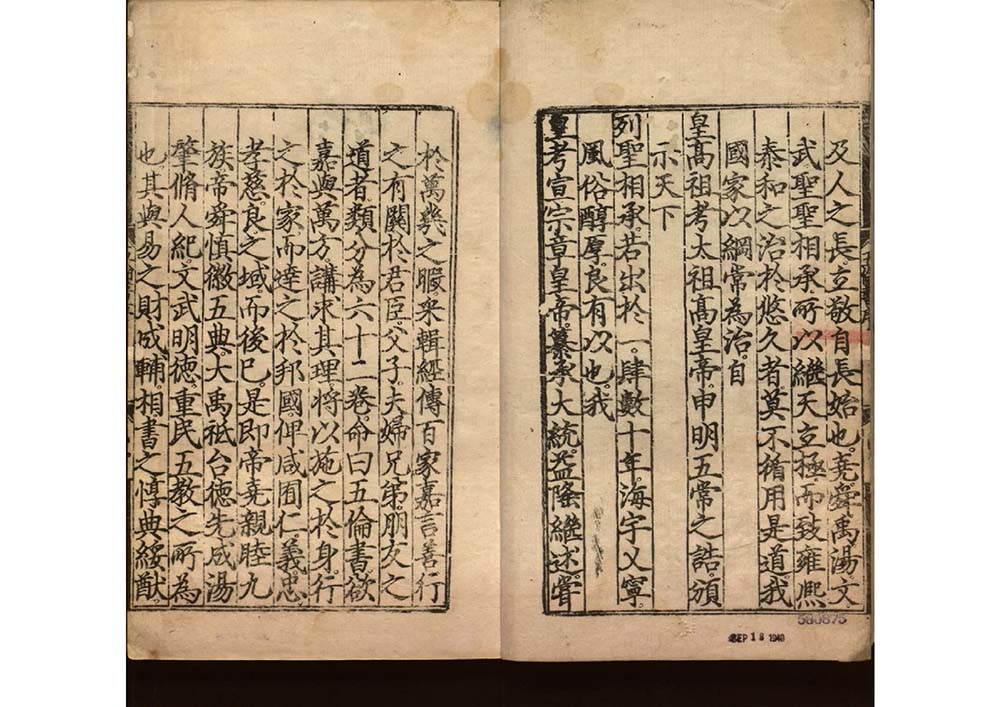 及人之長立敬自長始也堯舜禹湯文
武聖聖相承所以繼天立極而致雍熙
泰和之治於悠久者莫不循用是道我
國家以綱常為治自
皇高祖考太祖高皇帝申明五常之誥頒
示天下
列聖相承若出於一肆數十年海宇乂寧
風俗醇厚良有以也我
皇考宣宗章皇帝纂承大統益隆繼述嘗
於萬幾之暇采輯經傳百家嘉言善行
之有關於君臣父子夫婦兄弟朋友之
道者類分為六十二卷命曰五倫書欲
嘉與萬方講求其理將以施之於身行
之於家而達之於邦國俾咸囿仁義忠
孝慈良之域而後已是即帝堯親睦九
族帝舜慎徽五典大禹祗台德先成湯
肇脩人紀文武明德重民五教之所為
也其與易之財成輔相書之惇典綏猷
SEP 18 1940